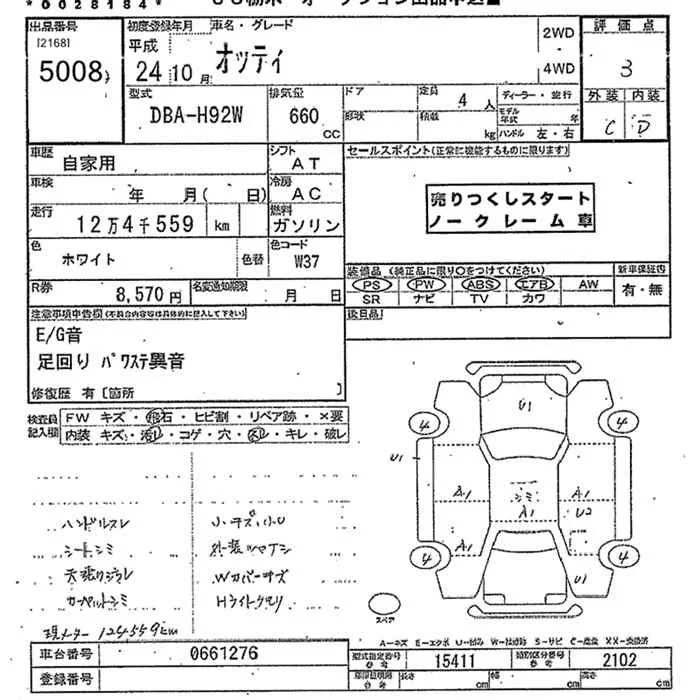 *0028184*
出品番号
[2168]
5008
初度登録年月
平成
24 10 月
車名・グレード
オッティ
2WD
4WD
評価点
3
外装 内装
C D
型式
DBA-H92W
排気量
660
CC
ドア
形状
定員
4 人
積載
kg
ディーラー・並行
モデル年式 年
ハンドル 左・右
車歴
自家用
シフト
AT
車検
年 月( 日)
冷房
AC
走行
12万4千559 km
燃料
ガソリン
色
ホワイト
色替
色コード
W37
R券
8,570 円
名変通知期限
月 日
セールスポイント(正常に機能するものに限ります)
売りつくしスタート
ノークレーム車
装備品 (純正品に限り○をつけてください)
PS PW ABS エアB AW
SR ナビ TV カワ
新車保証書
有・無
後日品
注意事項申告欄(不具合内容等は具体的に記入して下さい)
E/G音
足回り パワステ異音
修復歴 有〔箇所 〕
検査員記入欄
FW キズ・飛石・ヒビ割・リペア跡・×要
内装 キズ・汚レ・コゲ・穴・スレ・キレ・破レ
ハンドルスレ
シートシミ
天張りジワレ
カーペットシミ
小キズ・小U
外装ツヤナシ
Wカバーキズ
Hライトクモリ
現メーター 124559km
U1
4
4
U1
A1
シミ
A1
A1
U2
A1
4
4
U1
スペア
A-キズ E-エクボ U-凹み W-補修跡 S-サビ C-腐食 XX-交換済
車台番号
0661276
登録番号
型式指定番号
参考
15411
類別区分番号
参考
2102
長さ cm 幅 cm 高さ cm